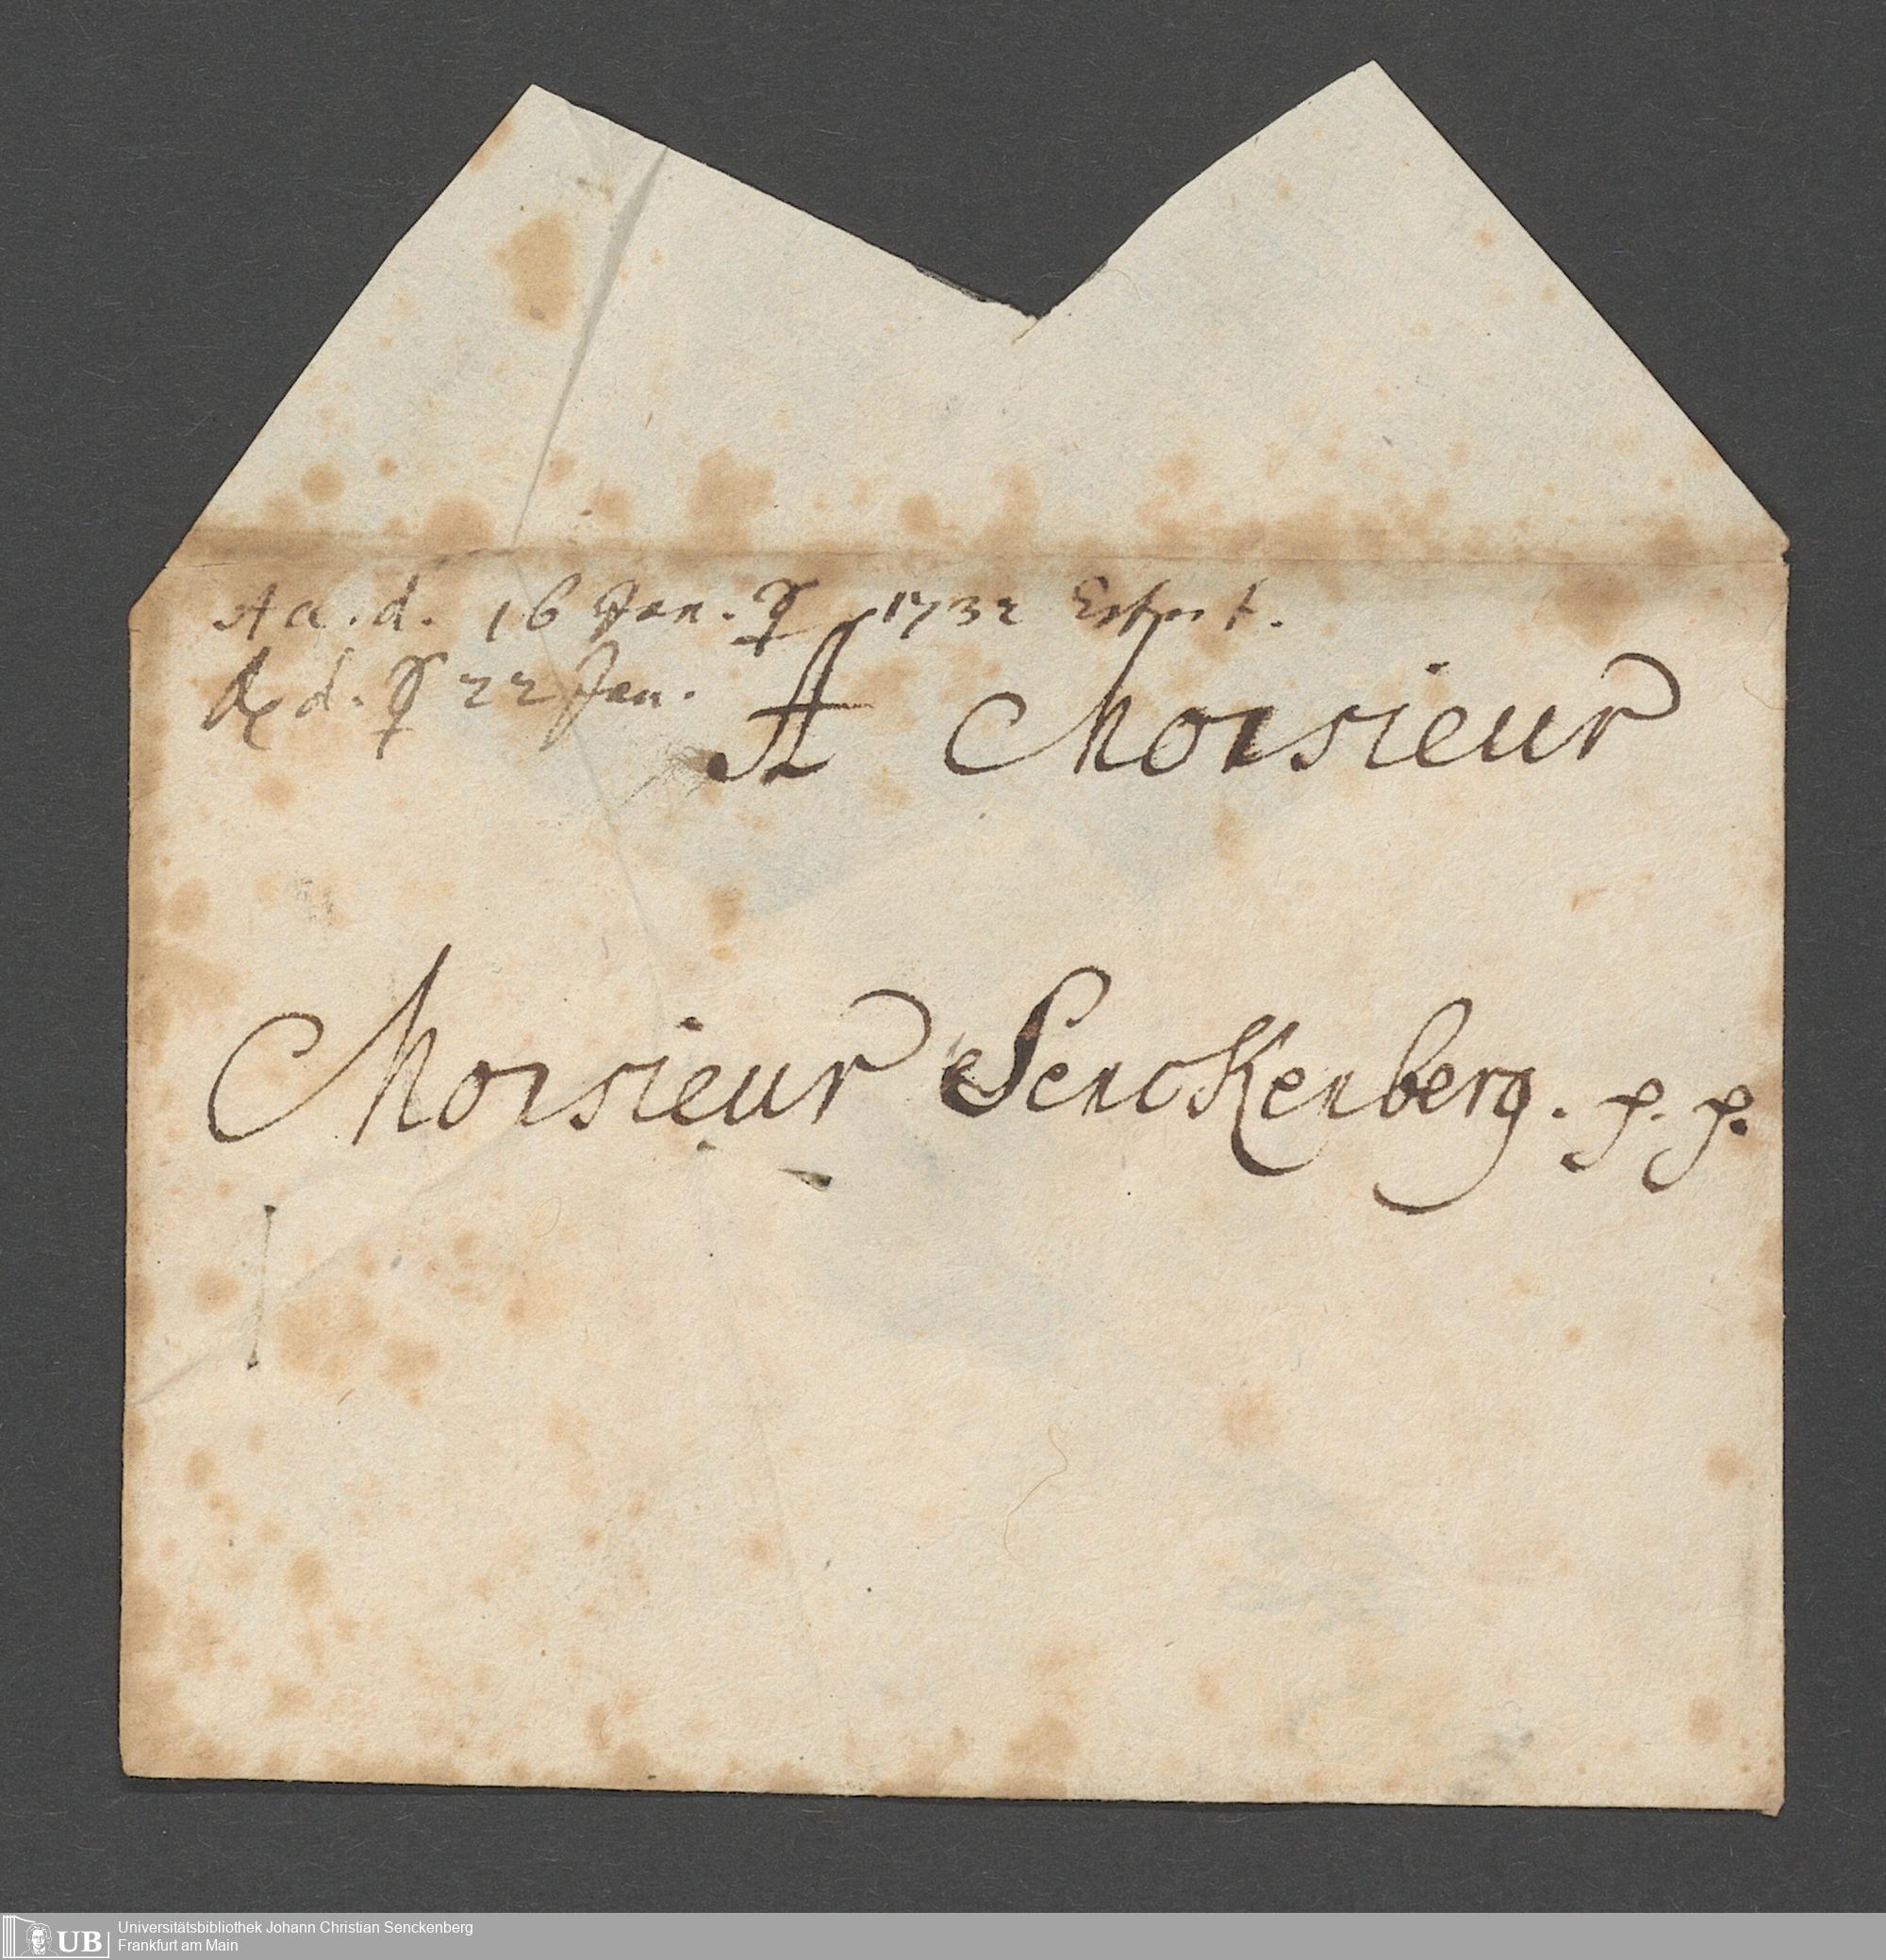 Aa. d. 16 Jan. ☿ 1732 Erfurt.
d. ☿ 22 Jan.
A Monsieur
Monsieur Senckenberg. p. p.
UB
Universitätsbibliothek Johann Christian Senckenberg
Frankfurt am Main